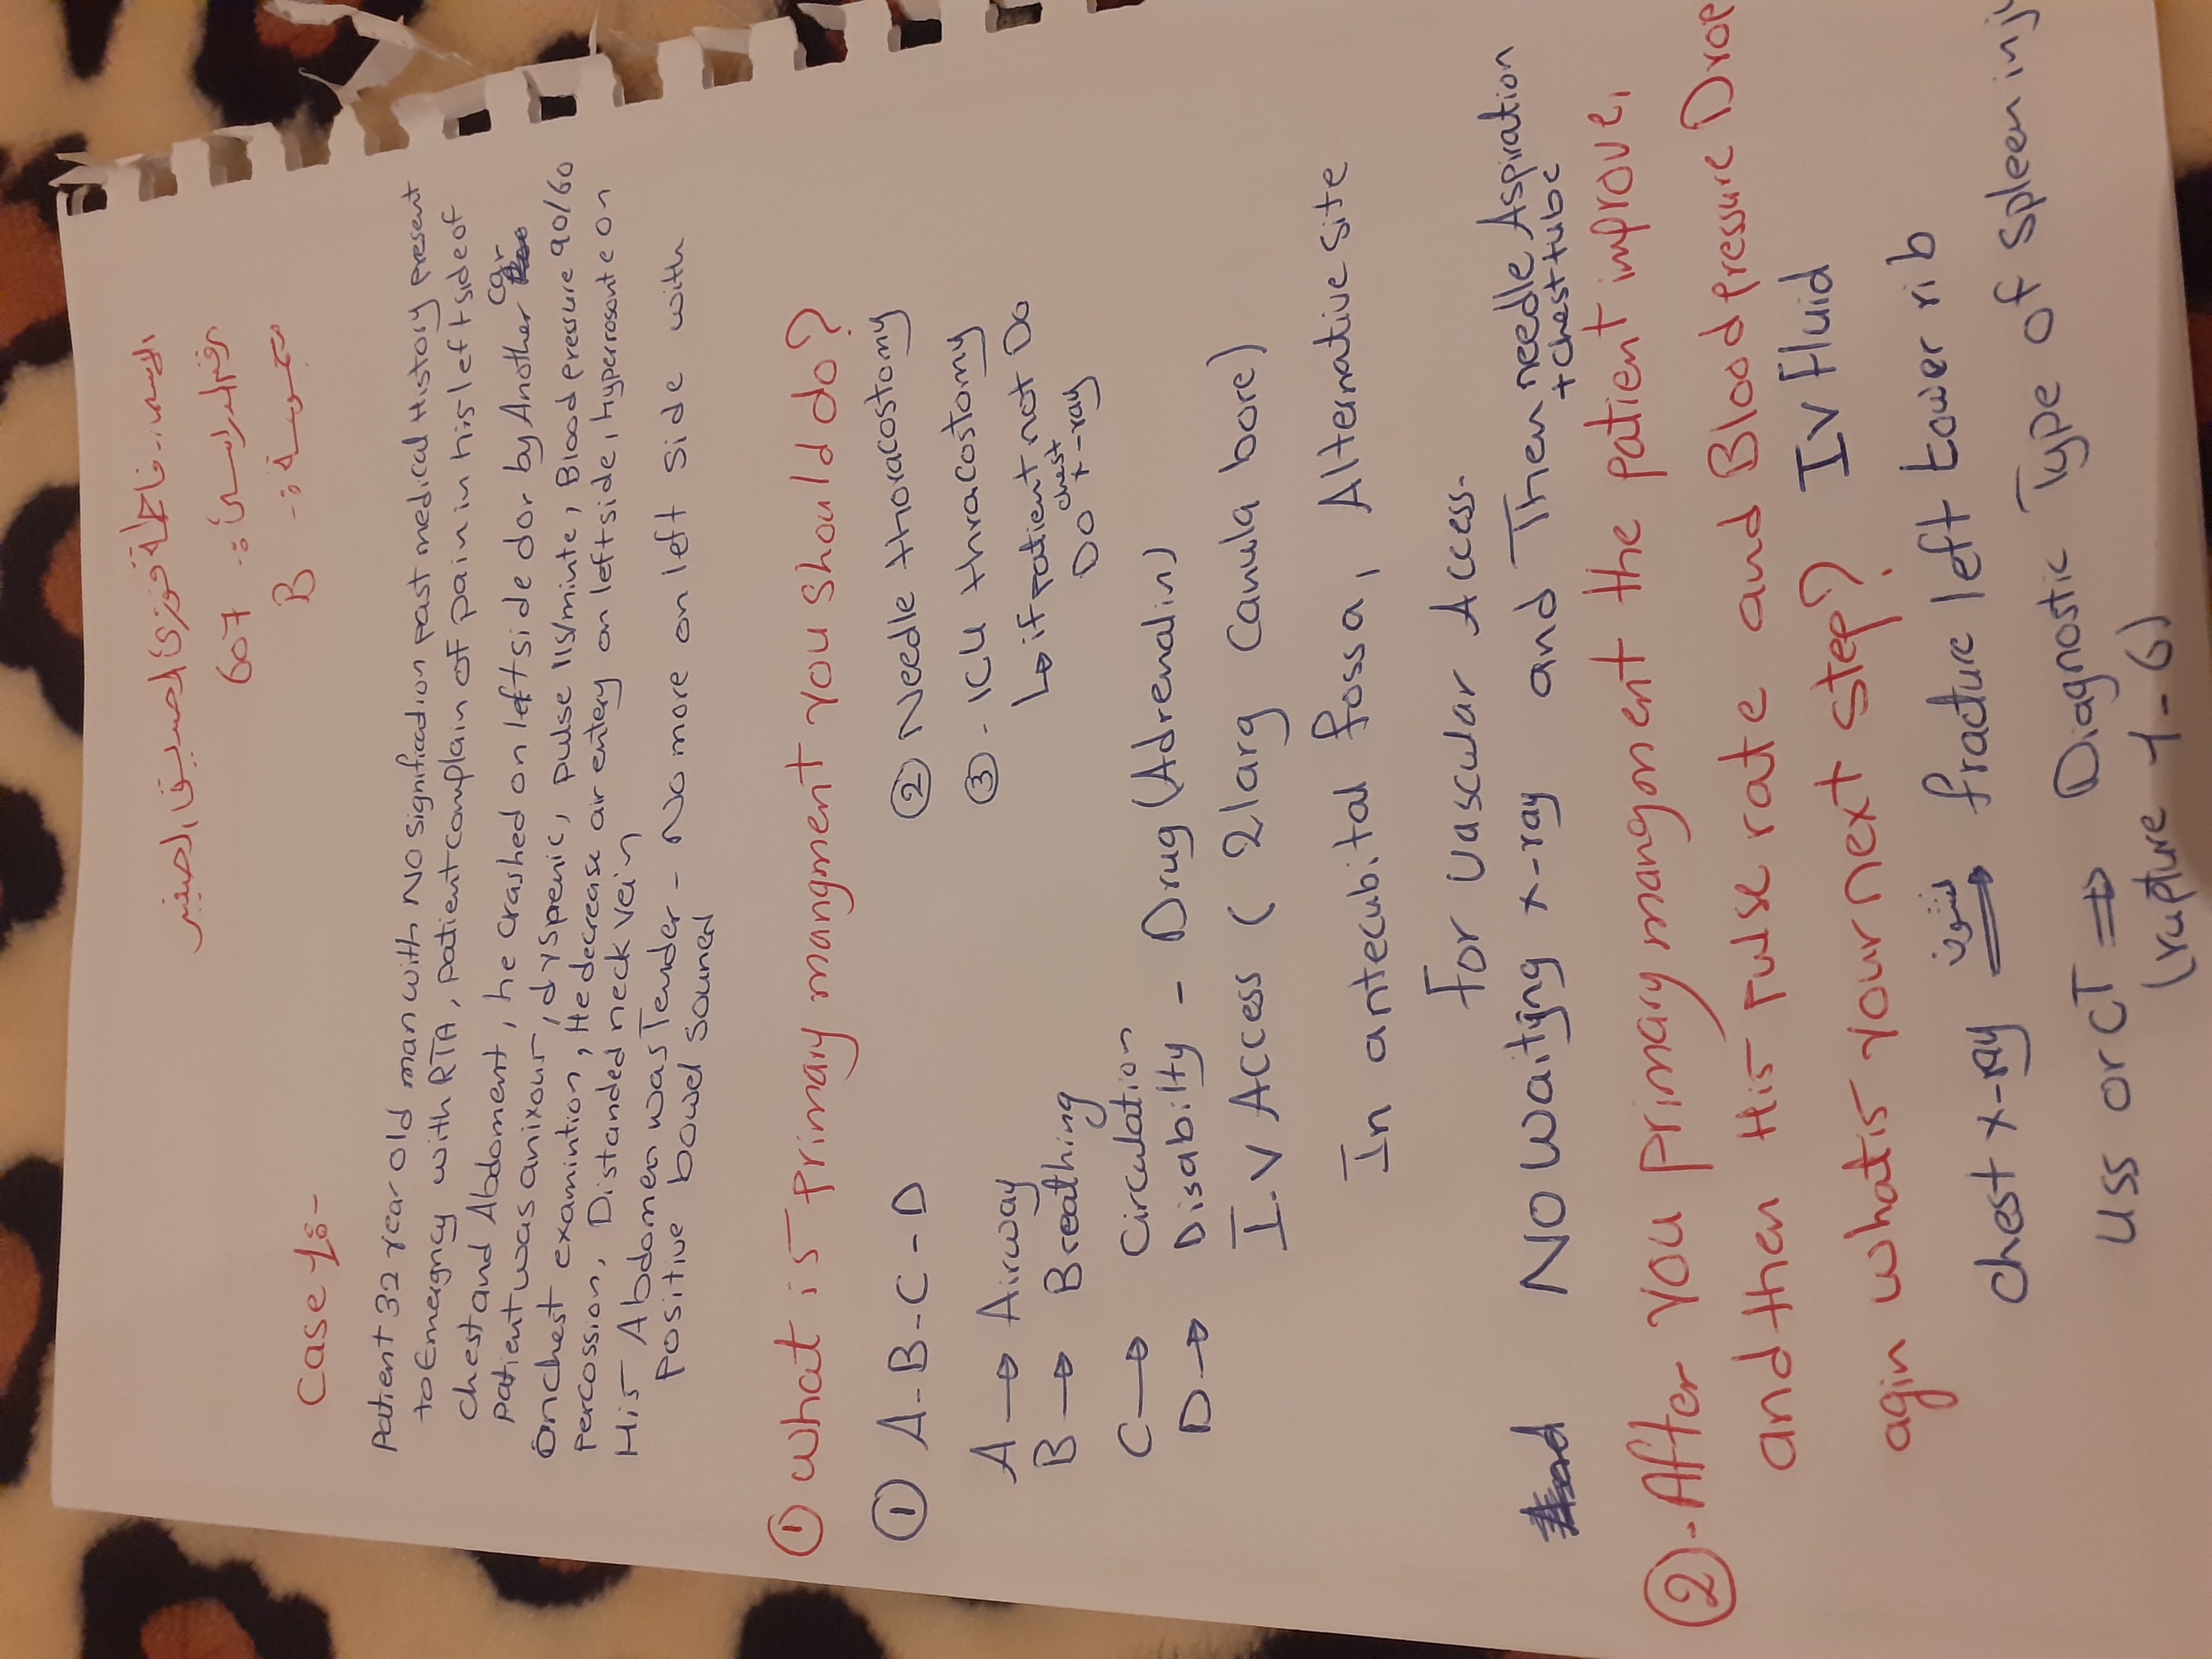 الاسم :- فاطمة فوزي الصديق الصغير
رقم الدراسي :- 607
مجموعة :- B
Case 1:-
Patient 32 year old man with No signification past medical History present
to Emergncy with RTA, patient complain of pain in his left side of
chest and Abdoment, he crashed on left side dor by Another car
patient was anixour, dyspenic, pulse 115/minte, Blood pressure 90/60
On chest examintion, He decrease air entery on left side, hyperrosonte on
percossion, Distanded neck vein
His Abdomen was Tender - No more on left side with
positive bowel souned
① what is primary mangment you should do?
① A-B-C-D
② Needle thoracostomy
A → Airway
③ - ICU thracostomy
B → Breathing
↳ if patient not Do
Do chest x-ray
C → Circulation
D → Disabilty - Drug (Adrenalin)
I-V Access ( 2 larg Canula bore)
In antecubital fossa, Alternative site
For Vascular Access.
No waiting x-ray and Then needle Aspiration
+ chest tube
②.- After you primary mangment the patient improve,
and then His Pulse rate and Blood pressure Drop
agin what is your next step? IV Fluid
chest x-ray نشوف ⇒ fracture left tower rib
USS or CT ⇒ Diagnostic Type of spleen inju
(rupture 1-6)